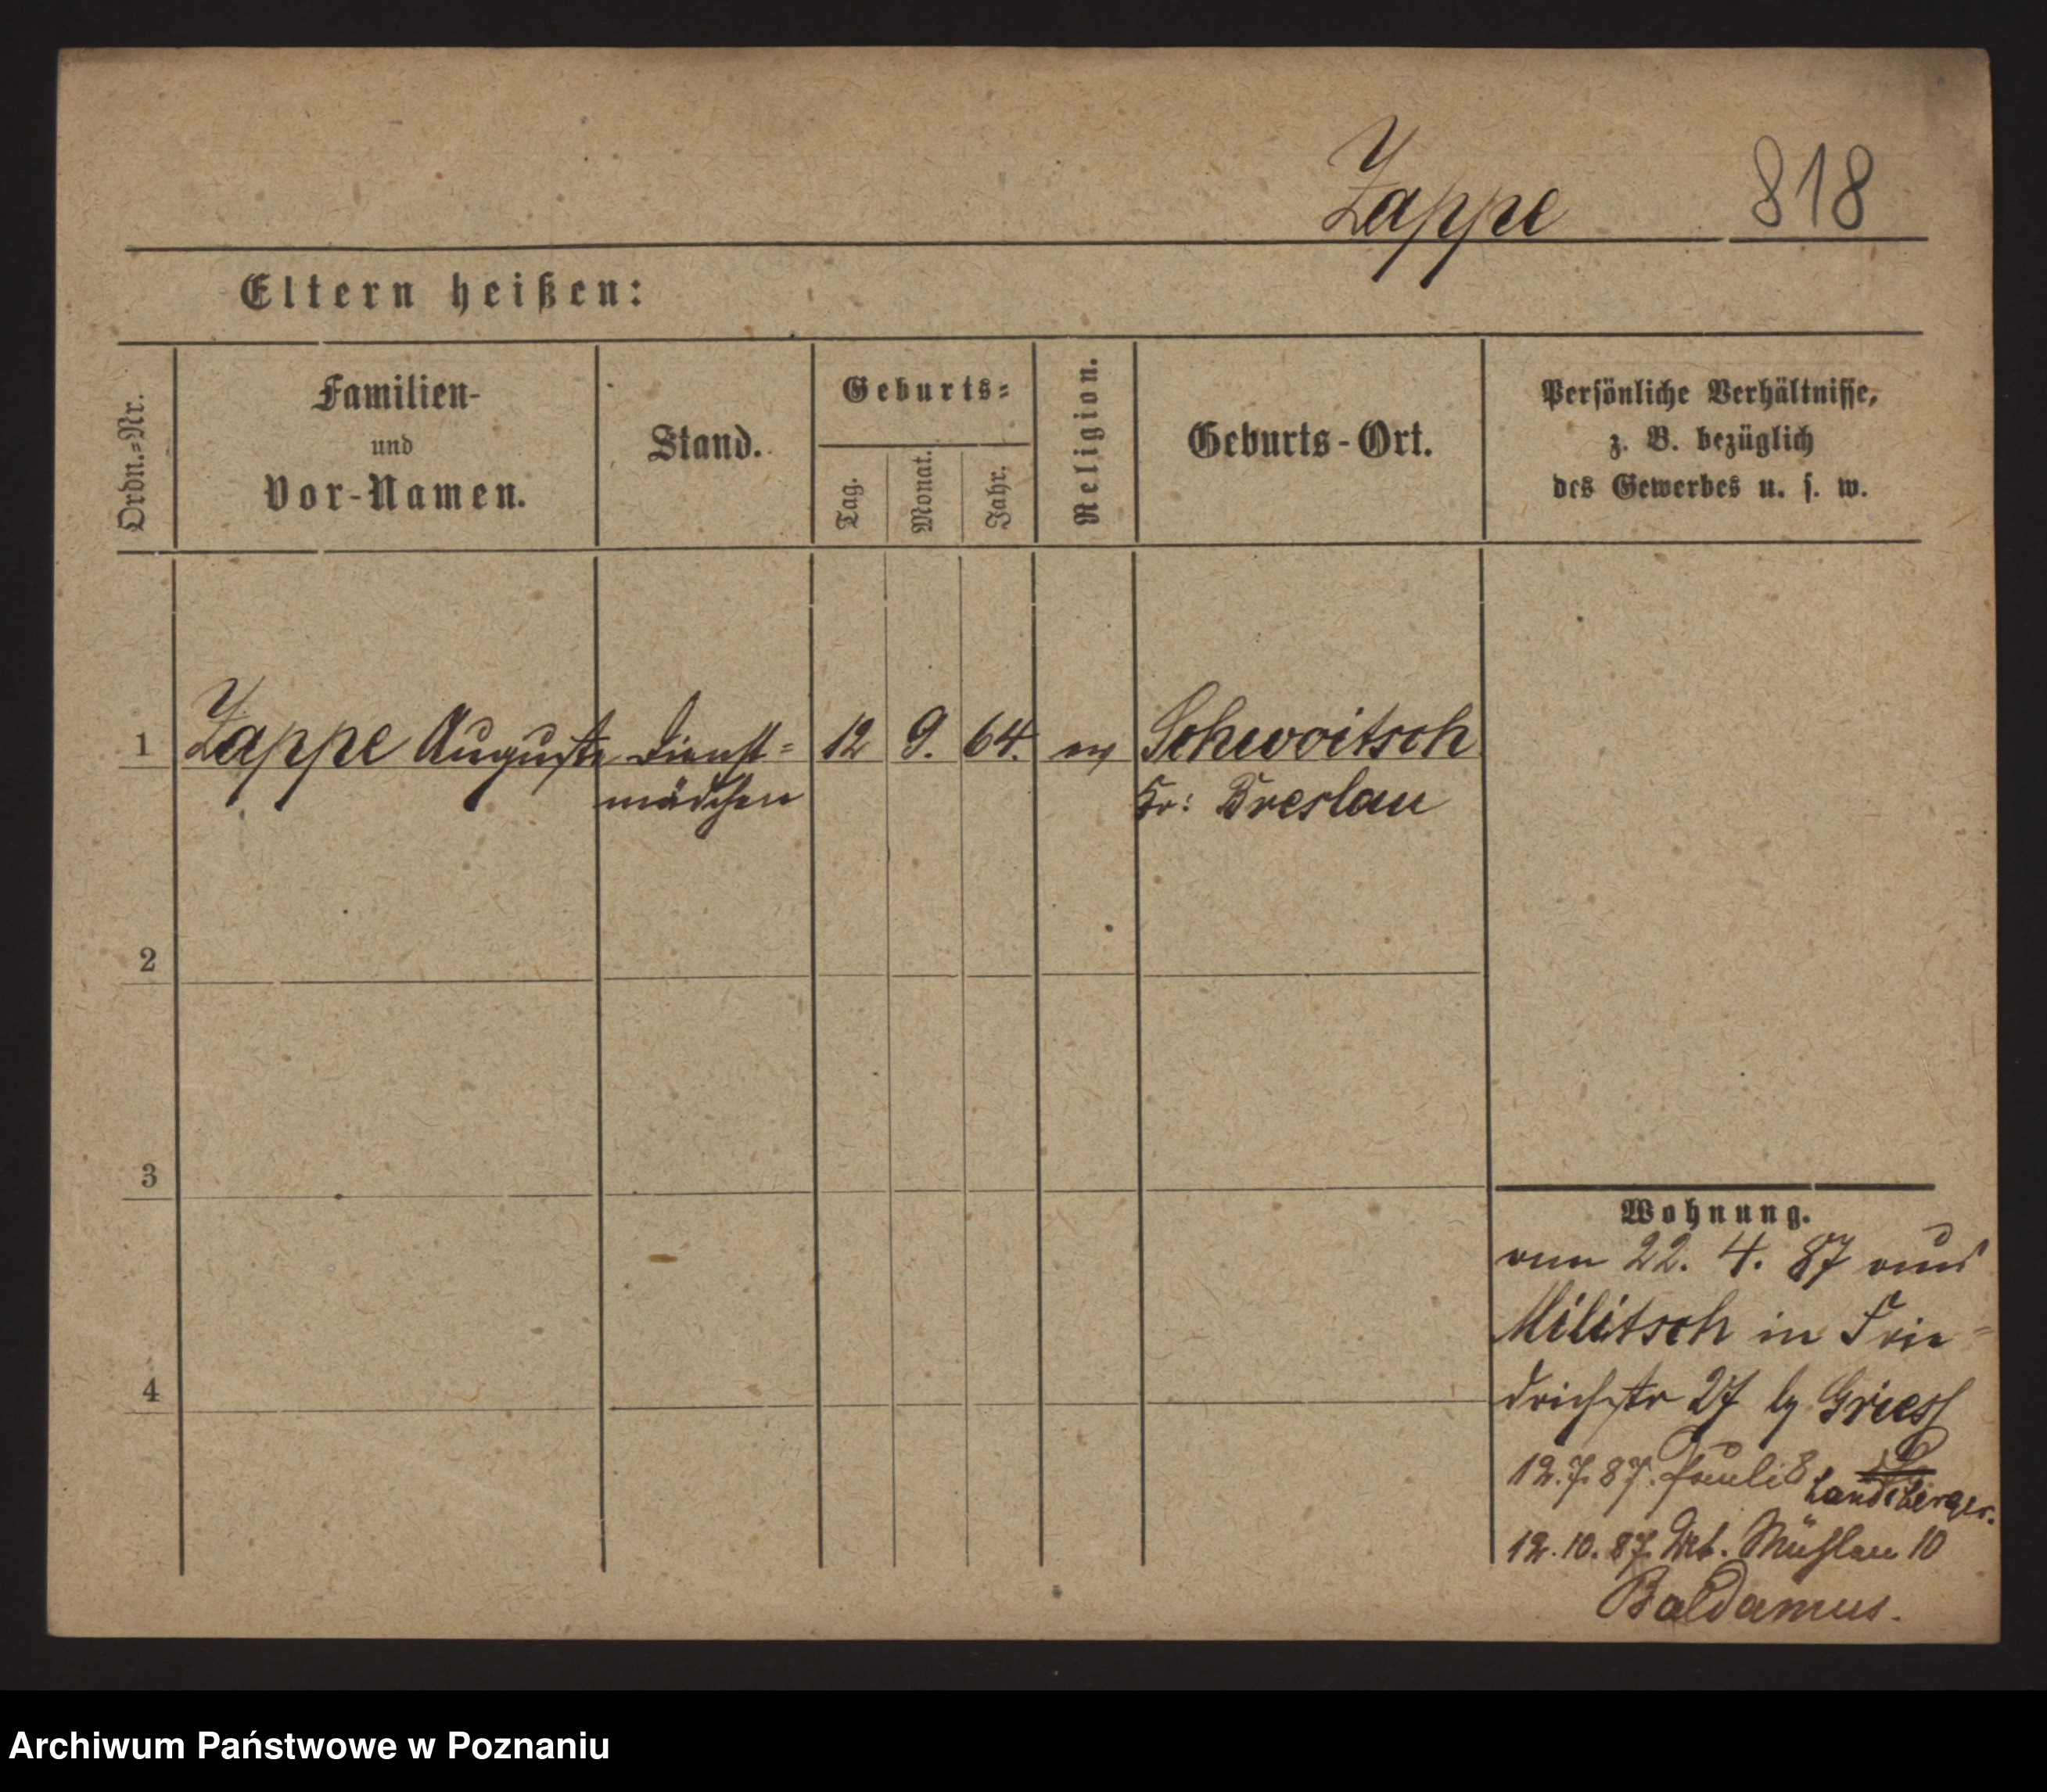 Zappe 818
Eltern heißen:
Ordn.-Nr.
Familien-
und
Vor-Namen.
Stand.
Geburts-
Tag.
Monat.
Jahr.
Religion.
Geburts-Ort.
Persönliche Verhältnisse,
z. B. bezüglich
des Gewerbes u. s. w.
1 Zappe Auguste Dienst- 12 9. 64. ev Schwoitsch
mädchen Kr: Breslau
2
3
4
Wohnung.
am 22. 4. 87 aus
Militsch in Frie-
drichstr 27 by Griess
12.7.87. Pauli 8
Landsberger.
12.10.87. Mühlen 10
Baldamus.
Archiwum Państwowe w Poznaniu